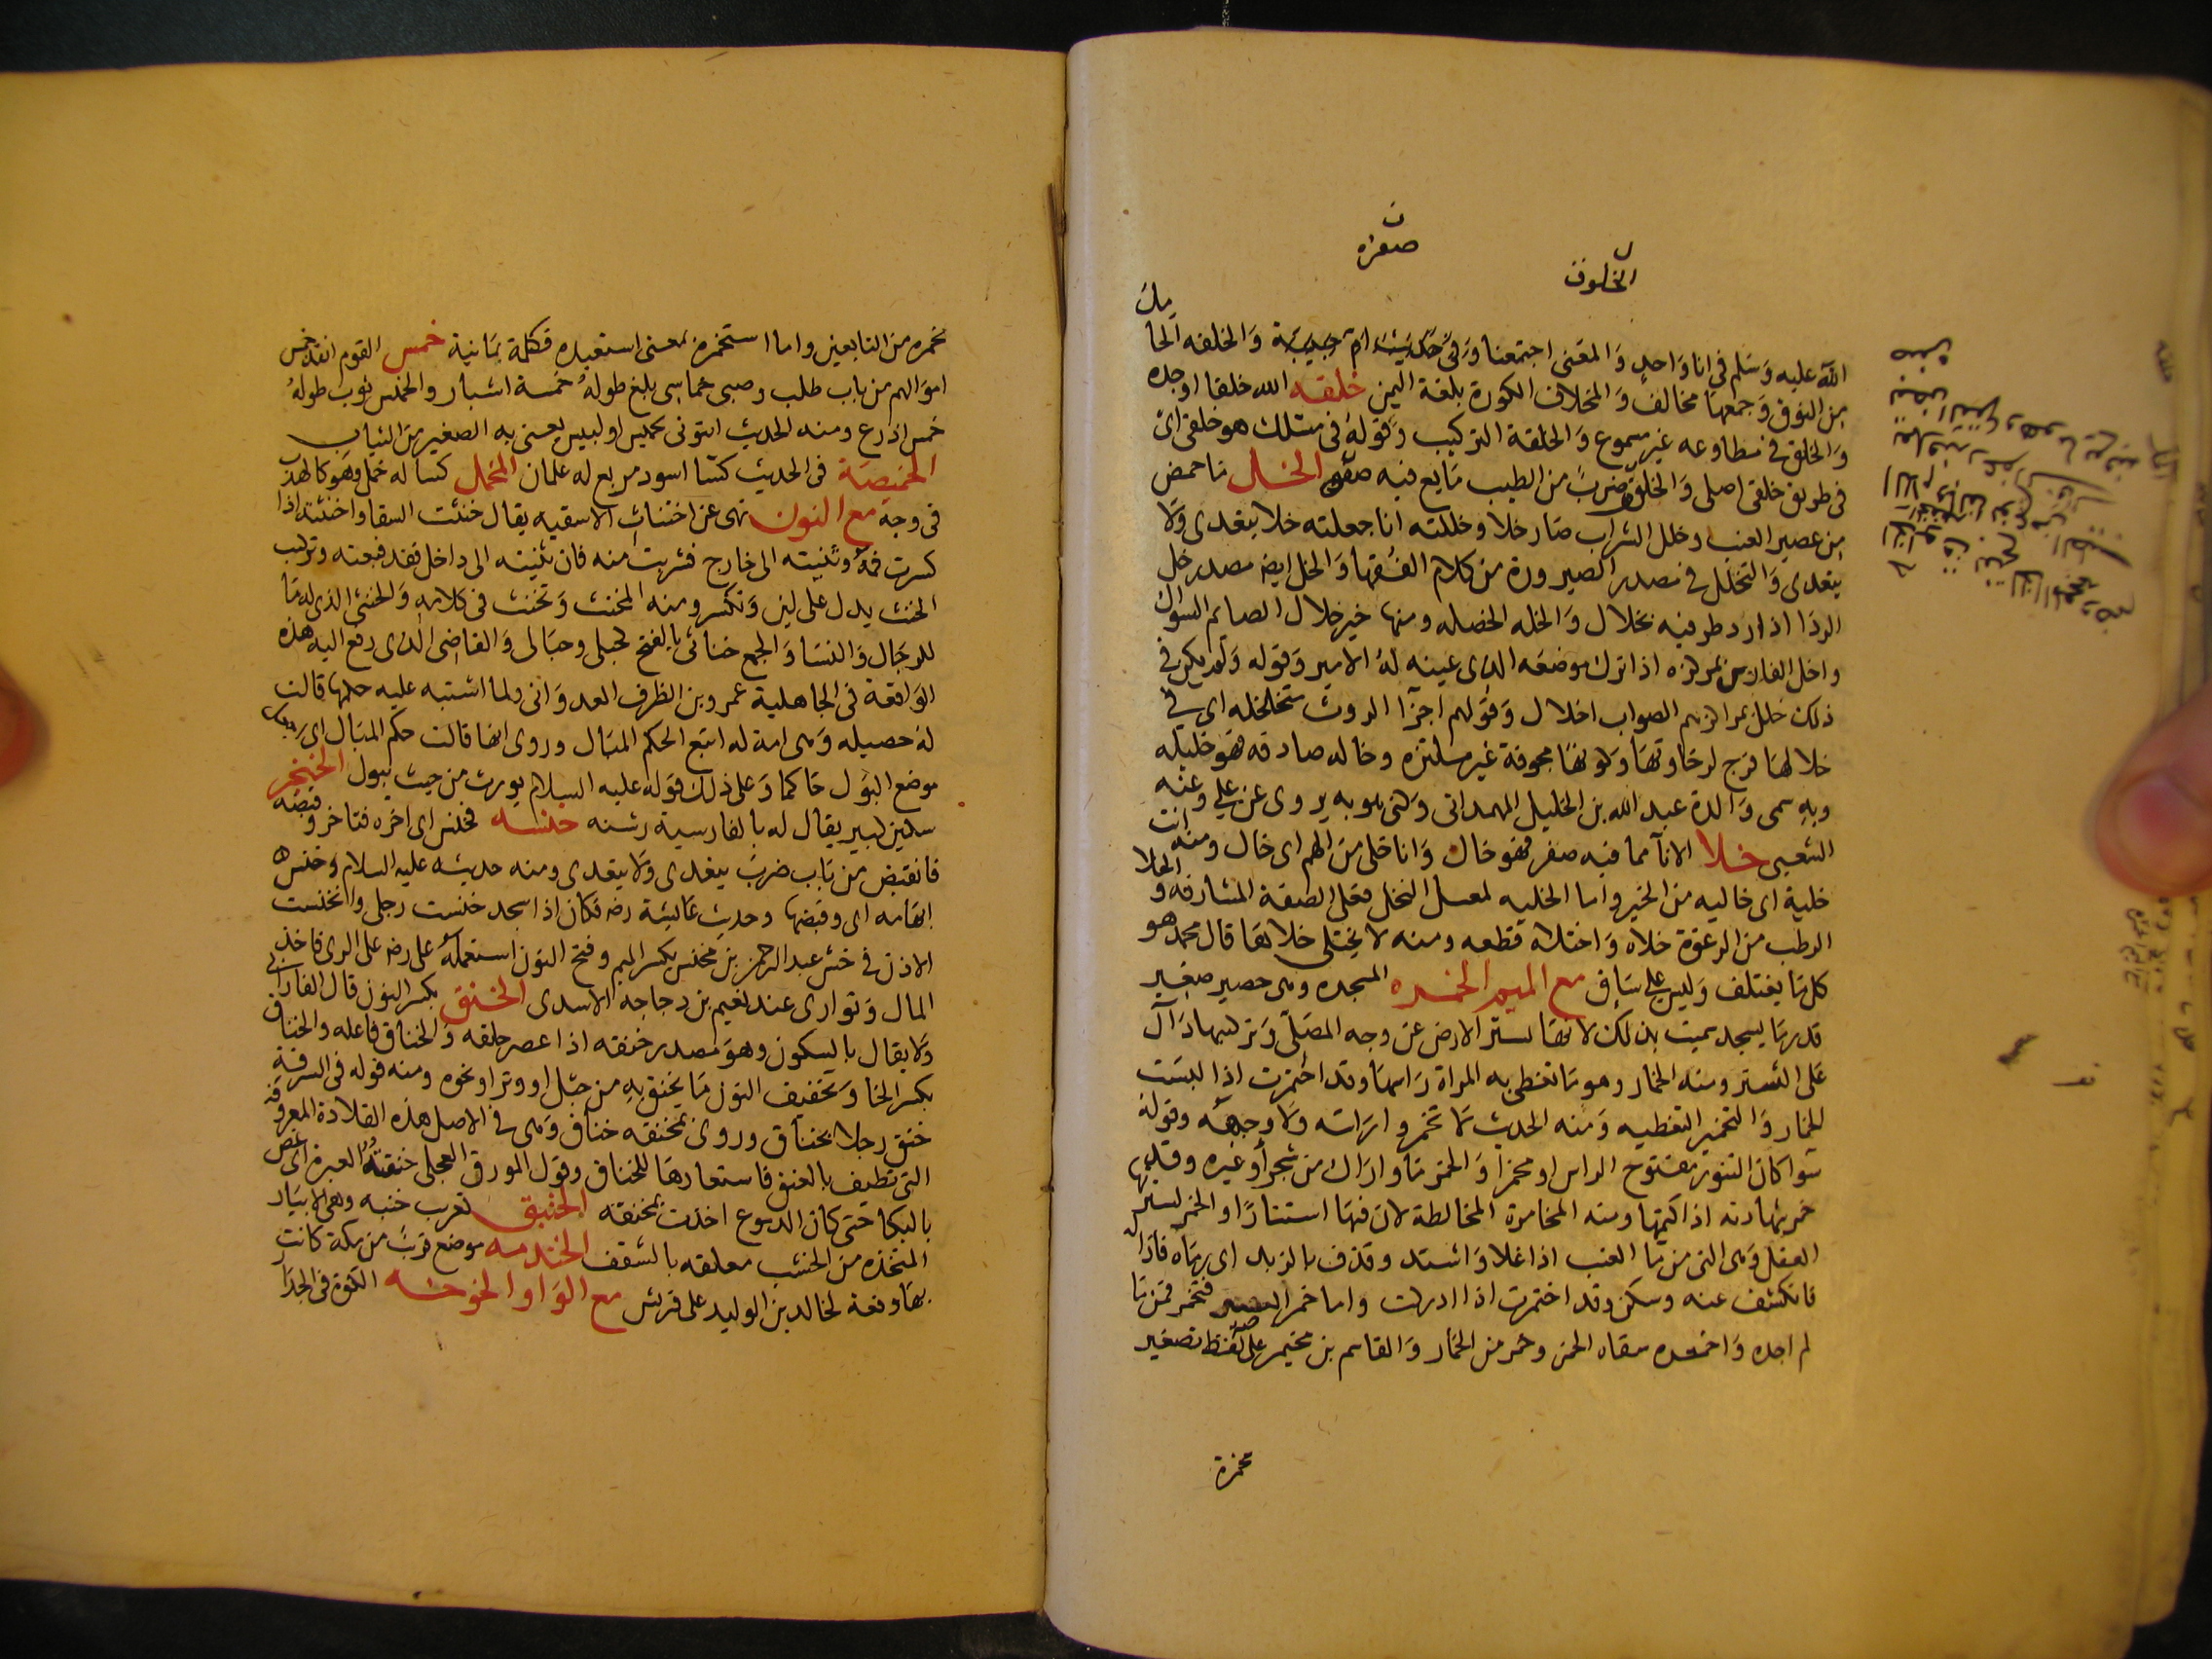 ن
صفرة
ل
الخلوف
مل
الله عليه وسلم في انا واحد والمعنى اجتمعنا وفي والخلفه الحا
من النوق وجمعها مخالف والمخلاف الكورة بلغة اليمن خلقه الله خلقا اوجده
والخلق في مطاوعه غير مسموع والخلقة التركيب وقوله في مثلك هو خلقى اى
فى طريق خلقى اصلى والخلوق ضرب من الطيب مايع فيه صفرة الخل ما حمض
من عصير العنب وخلل الشراب صار خلا وخللته انا جعلته خلا يتعدى ولا
يتعدى والتخلل في مصدر الصيرورة من كلام الفقها والخل ايضا مصدر خل
الردا اذا رد طرفيه بخلال والخله الخصله ومنها خير خلال الصايم السواك
واخل الفارس بمركزه اذا ترك موضعه الذى عينه له الامير وقوله ولم يكن في
ذلك خلل بمراكزهم الصواب اخلال وقولهم اجزا الروث متخلخله اى في
خلالها فرج لرخاوتها وكونها مجوفة غير مكتنزه وخاله صادقه فهو خليله
وبه سمى والدة عبد الله بن الخليل الهمدانى وكنى بوبه يروى عن علي وعنه
الشعبى خلا الانا مما فيه صفر فهو خال وانا خلى من الهم اى خال ومنه انت
خلية اى خاليه من الخير واما الخليه لمعسل النحل فعلى الصفة المشارفه و الخلا
الرطب من الرعوة خلاه واختلاه قطعه ومنه لا يختلى خلاها قال محمد هو
كل ما يعتلف وليس على ساق مع الميم الخمره المسجده وهى حصير صغير
قدر ما يسجد سميت بذلك لانها تستر الارض عن وجه المصلى وتركيبها دال
على الستر ومنه الخمار وهو ما تغطى به المراة راسها وقد اختمرت اذا لبست
الخمار والتخمير التغطيه ومنه الحديث لا تخمروا راسه ولا وجهه وقوله
سوا كان التنور مفتوح الراس او مخمرا والخمر ما واراك من شجر أو غيره وقد
خمر شهادته اذا كتمها ومنه المخامرة المخالطة لان فيها استتارا والخمر لسترها
العقل وهى التى من ما العنب اذا غلا واشتد وقذف بالزبد اى رماه فازاله
فانكشف عنه وسكن وقد اختمرت اذا ادركت واما خمر العصير فتخمر فمن ما
لم اجده واخمره سقاه الخمر وخمر من الخمار والقاسم بن مخيمرة على لفظ تصغير
مخمرة
مخمره من التابعين واما استخمره بمعنى استعبده فكلمة يمانية خمس القوم اخذ خمس
اموالهم من باب طلب وصبى خماسى بلغ طوله خمسة اشبار والخمس ثوب طوله
خمس اذرع ومنه الحديث ايتونى بخميس او لبيس يعنى به الصغير من الثياب
الخميصة فى الحديث كسا اسود مربع له علمان المخمل كسا له خمل وهو كالهدب
فى وجه مع النون نهى عن اختناث الاسقيه يقال خنثت السقا واختنثته اذا
كسرت فمه وثنيته الى خارج فشربت منه فان ثنيته الى داخل فقد قبعته وتركيب
الخنث يدل على لين وتكسر ومنه المخنث وتخنث فى كلامه والخنثى الذى له ما
للرجال والنسا والجمع خناثى بالفتح كحبلى وحبالى والقاضى الذى رفع اليه هذه
الواقعة فى الجاهلية عمرو بن الظرف العدوانى ولما اشتبه عليه حكمها قالت
له خصيله وهى امة له اتبع الحكم المبال وروى انها قالت حكم المبال اى اجعل
موضع البول حاكما وعلى ذلك قوله عليه السلام يورث من حيث يبول الخنجر
سكين كبير يقال له بالفارسية دشنه خنسه فخنس اى اخره فتاخر و قبضه
فانقبض من باب ضرب يتعدى ولا يتعدى ومنه حديثه عليه السلام وخنس
ابهامه اى وقبضها وحديث عايشة رضه فكان اذا سجد خنست رجلى وانخنست
الاذن فى خنس عبد الرحمن بن مخنس بكسر الميم وفتح النون استعمله على رضه على الرى فاخذ
المال وتوارى عند نعيم بن دجاجة الاسدى الخنق بكسر النون قال الفارابى
ولا يقال بالسكون وهو مصدر خنقه اذا عصر حلقه والخناق فاعله والخناق
بكسر الخا وتخفيف النون ما يخنق به من حبل او وتر او نحوه ومنه قوله فى السرقة
خنق رجلا بخناق وروى بمخنقه خناق وهى في الاصل هذه القلادة المعروفة
التى تطيف بالعنق فاستعارها للخناق وقول المورق العجلى خنقته العبرة اى غص
بالبكا حتى كان الدموع اخذت بمخنقه الخنبق تعريب خنبه وهى الانبار
المتخذه من الخشب معلقه بالسقف الخندمه موضع قرب من مكة كانت
بها وقعة لخالد بن الوليد على قريش مع الواو الخوخه الكوة فى الجدا